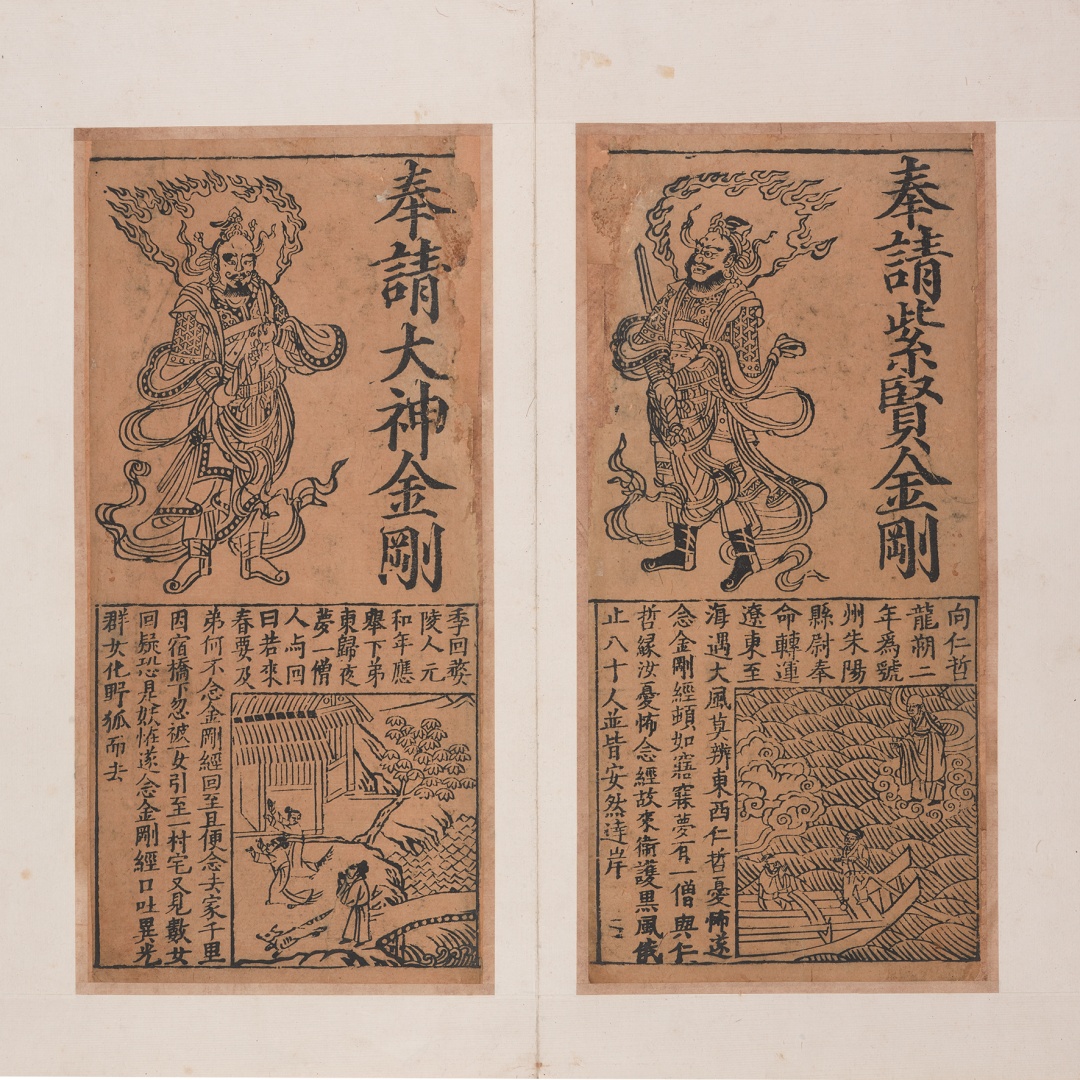 奉請紫賢金剛
向仁哲
龍朔二
年爲號
州朱陽
縣尉奉
命轉運
遼東至
海遇大風莫辨東西仁哲憂怖遂
念金剛經頓如寤寐夢有一僧與仁
哲緣汝憂怖念經故來衛護黑風俄
止八十人並皆安然達岸
奉請大神金剛
季回婺
陵人元
和年應
舉下弟
東歸夜
夢一僧
人与回
曰若來
春要及
弟何不念金剛經回至旦便念去家千里
因宿橋下忽被一女引至一村宅又見數女
回疑恐是妖恠遂念金剛經口吐異光
群女化野狐而去